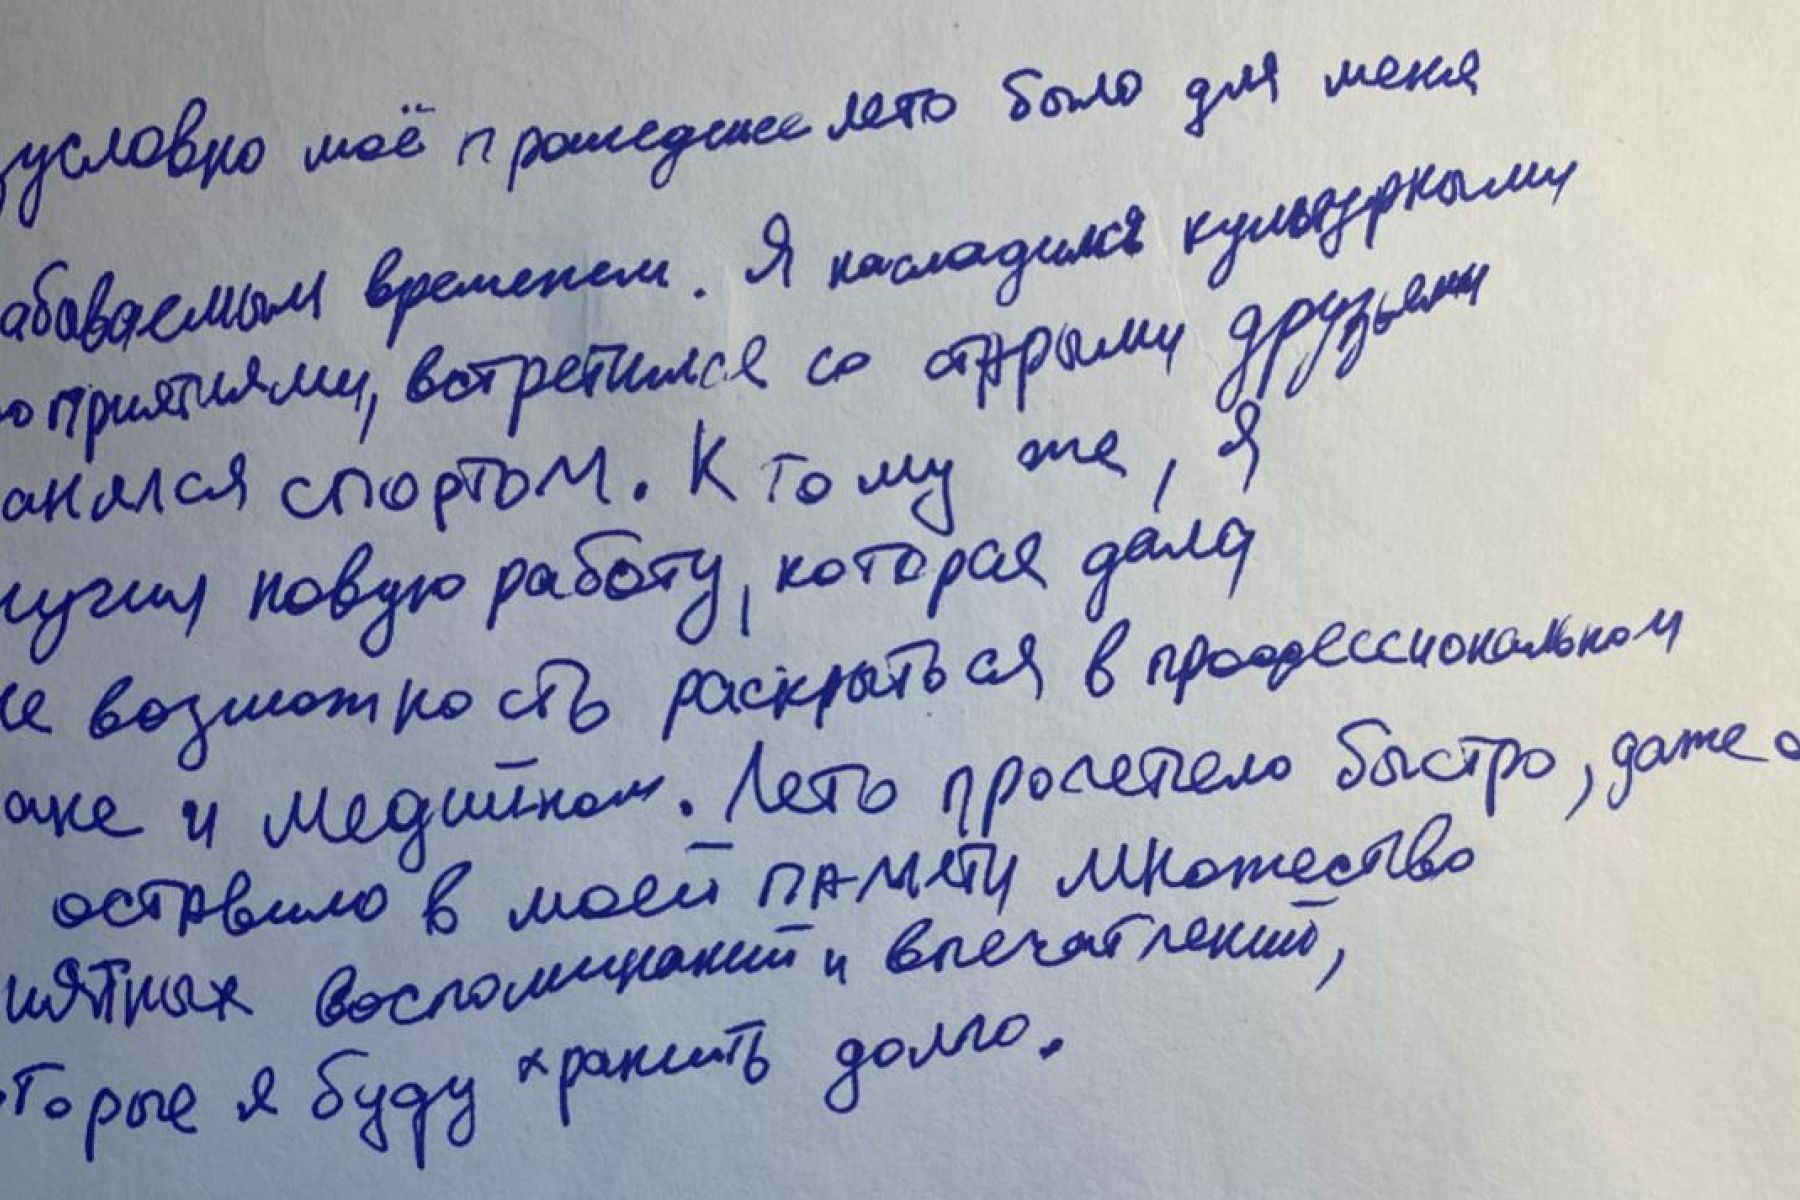 зусловно моё прошедшее лето было для меня
абываемым временем. Я насладился культурными
оприятиями, встретился со старыми друзьями
анялся спортом. К тому же, я
лучил новую работу, которая дала
не возможность раскрыться в профессиональном
лане и медийном. Лето пролетело быстро, даже о
оставило в моей памяти множество
иятных воспоминаний и впечатлений,
оторые я буду хранить долго.